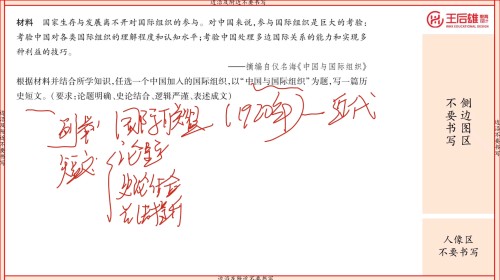 边沿及附边不要书写
材料 国家生存与发展离不开对国际组织的参与。对中国来说,参与国际组织是巨大的考验:
考验中国对各类国际组织的理解程度和认知水平;考验中国处理多边国际关系的能力和实现多
种利益的技巧。
——摘编自仪名海《中国与国际组织》
根据材料并结合所学知识,任选一个中国加入的国际组织,以“中国与国际组织”为题,写一篇历
史短文。(要求:论题明确、史论结合、逻辑严谨、表述成文)
国际联盟 (1920年)
短文
史论结合
王后雄
教育云
侧边图区
不要书写
人像区
不要书写
边沿不要书写